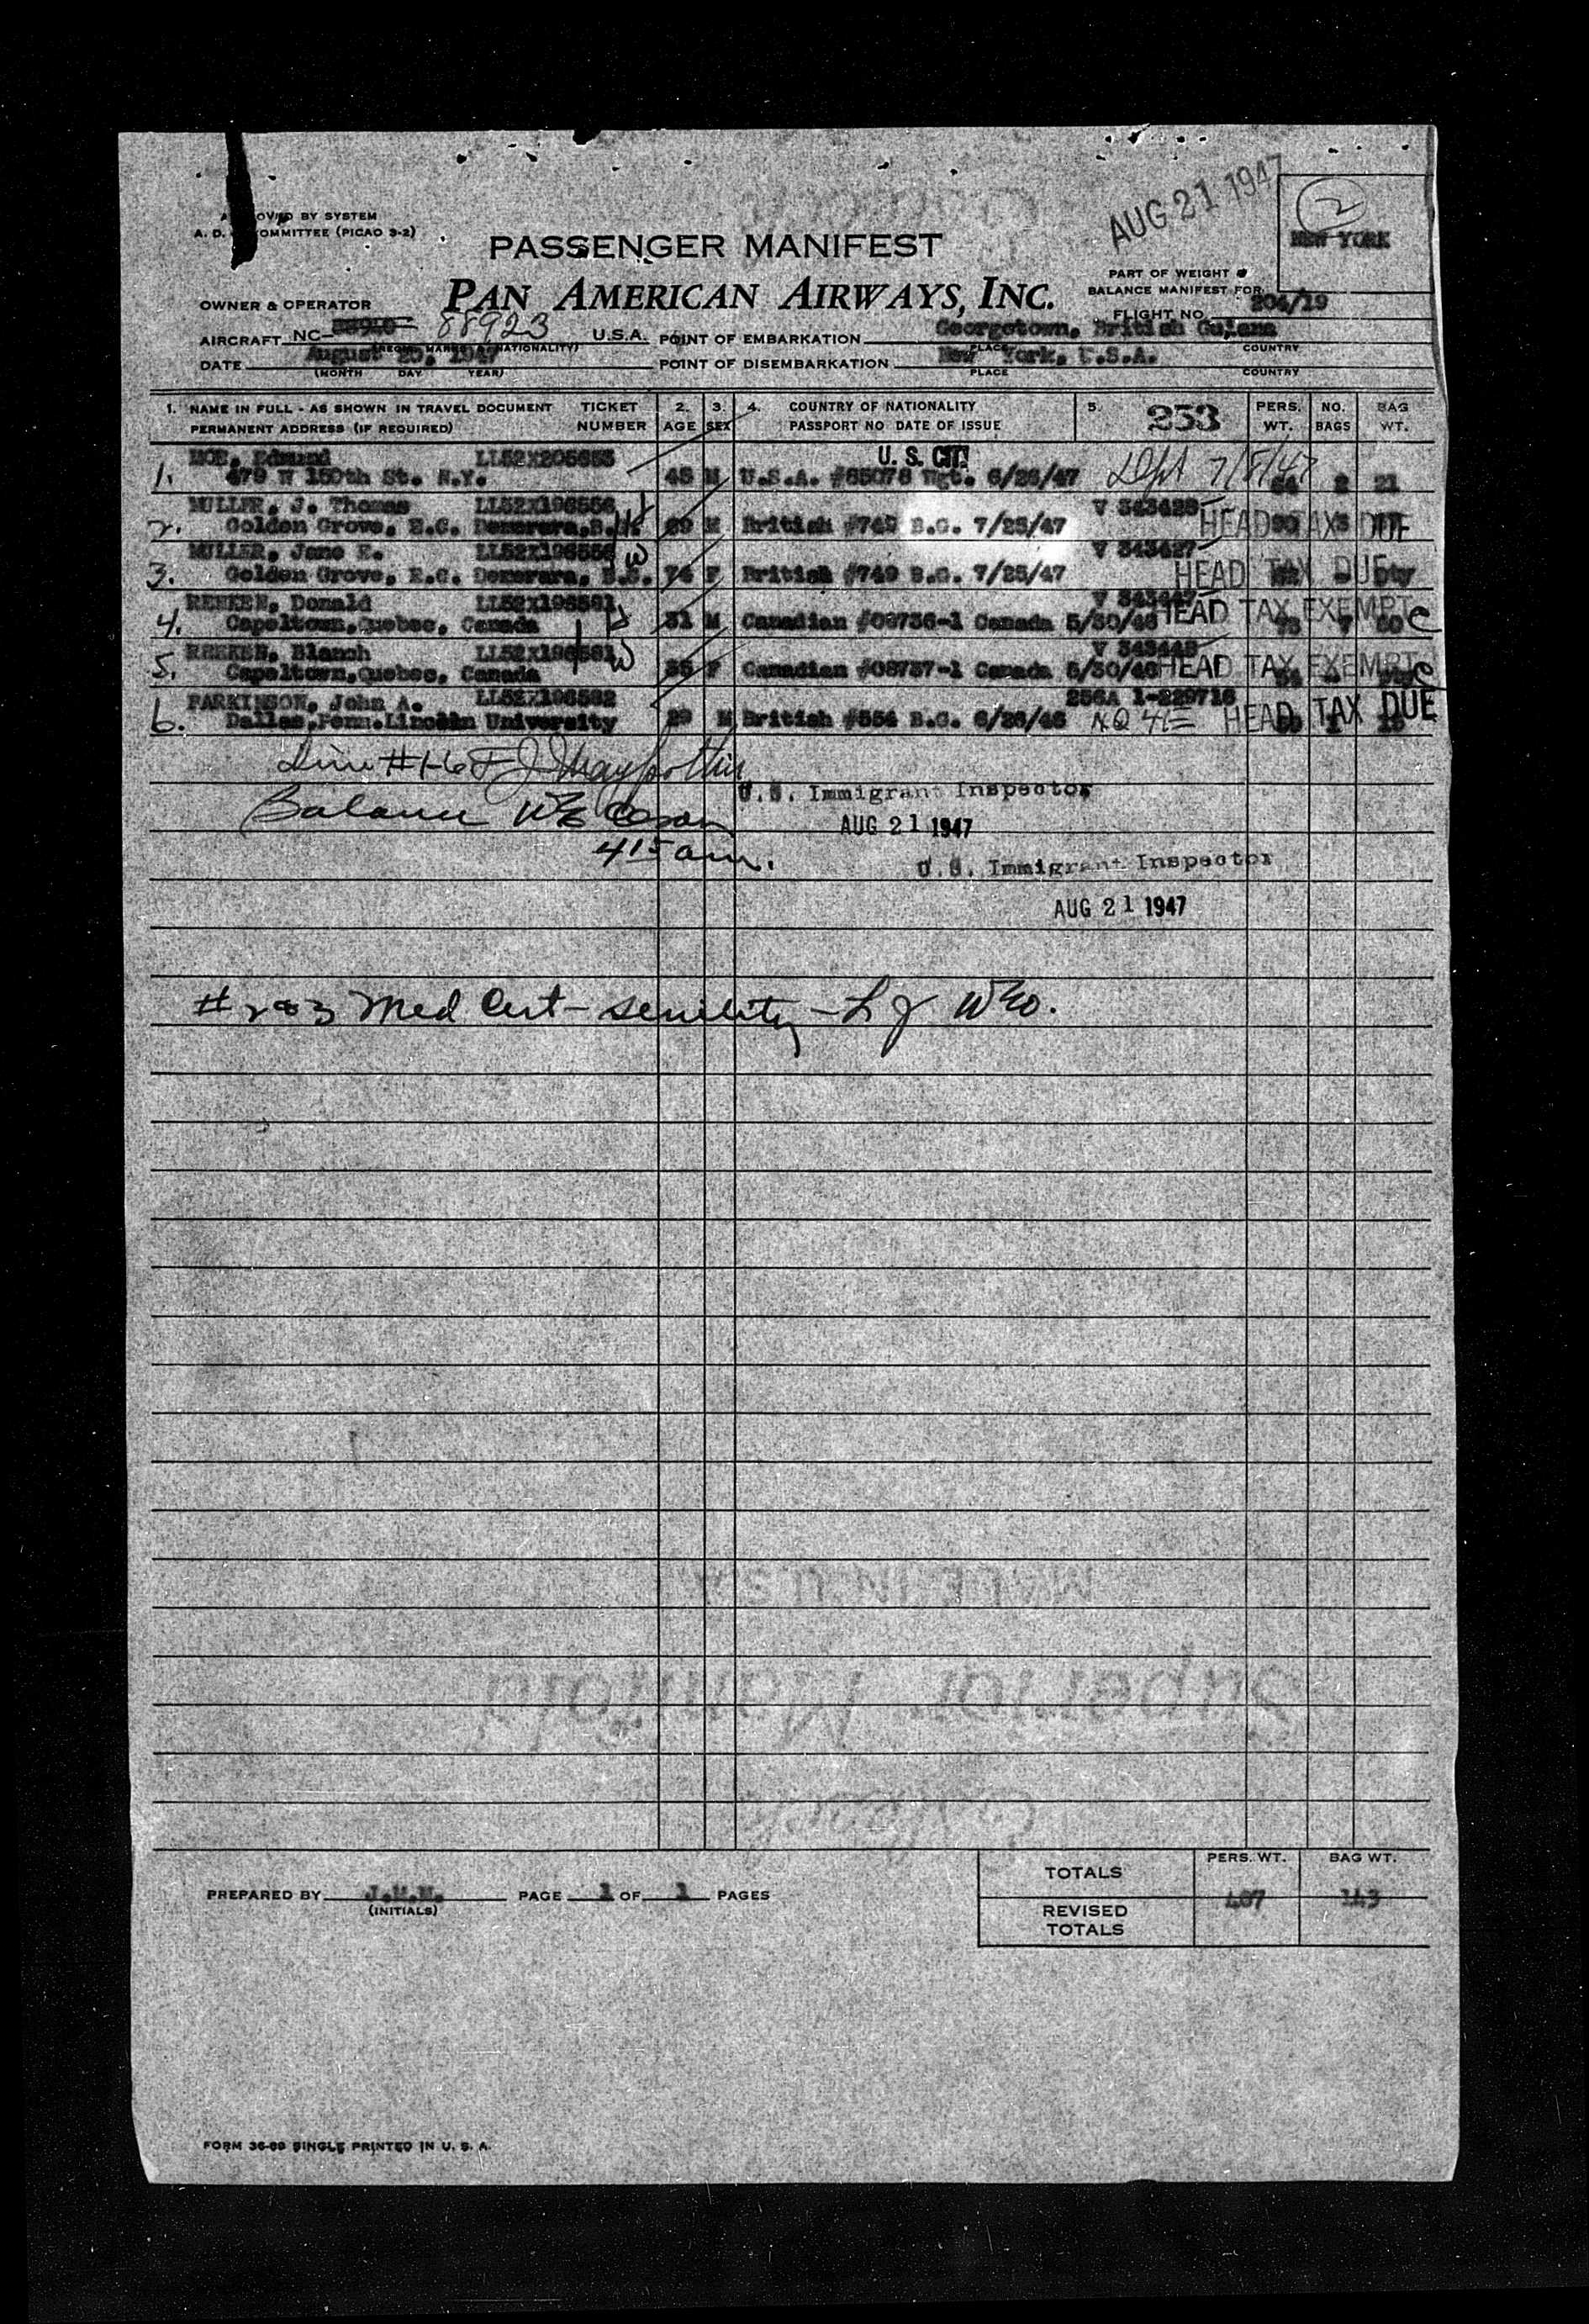 AUG 21 1947
2
NEW YORK
BY SYSTEM
A. D. COMMITTEE (PICAO 3-2)
PASSENGER MANIFEST
PAN AMERICAN AIRWAYS, INC.
PART OF WEIGHT &
BALANCE MANIFEST FOR
FLIGHT NO. 204/19
OWNER & OPERATOR
AIRCRAFT NC- 88923 U.S.A. POINT OF EMBARKATION Georgetown, British Guiana
PLACE COUNTRY
DATE August 20, 1947 POINT OF DISEMBARKATION New York, U.S.A.
(MONTH DAY YEAR) PLACE COUNTRY
1. NAME IN FULL - AS SHOWN IN TRAVEL DOCUMENT TICKET 2. 3. 4. COUNTRY OF NATIONALITY 5. 253 PERS. NO. BAG
PERMANENT ADDRESS (IF REQUIRED) NUMBER AGE SEX PASSPORT NO DATE OF ISSUE WT. BAGS WT.
MOE, Edmund LL52X205653 U. S. CIT.
1. 479 W 150th St. N.Y. 45 M U.S.A. #85078 Wgt. 6/26/47 Dept 7/8/47 2 21
MULLER, J. Thomas LL52X196556 V 343428
2. Golden Grove, E.C. Demerara, B.G. M British #749 B.G. 7/25/47 HEAD TAX DUE
MULLER, Jane E. LL52X196556 W V 343427
3. Golden Grove, E.C. Demerara, B.G. 74 F British #749 B.G. 7/25/47 HEAD TAX DUE
Donald LL52X196581 V 343447
4. Capeltown, Quebec, Canada 31 M Canadian #08736-1 Canada 5/30/46 HEAD TAX EXEMPT C
Blanch LL52X196581 W V 343448
5. Capeltown, Quebec, Canada F Canadian #08737-1 Canada 5/30/46 HEAD TAX EXEMPT C
PARKINSON, John A. LL52X196582 256A 1-229716
6. Dallas, Penn. Lincoln University 29 M British #554 B.G. 6/26/46 NQ 4E HEAD TAX DUE
Line #1-6
U.S. Immigrant Inspector
Balance
AUG 21 1947
415 am.
U.S. Immigrant Inspector
AUG 21 1947
#2&3 Med Cert - senility - L J WEO.
MADE IN U.S.A.
Superior Manifold
TOTALS PERS. WT. BAG WT.
PREPARED BY J.M.M. PAGE 1 OF 1 PAGES
(INITIALS)
REVISED 407 143
TOTALS
FORM 36-69 SINGLE PRINTED IN U. S. A.